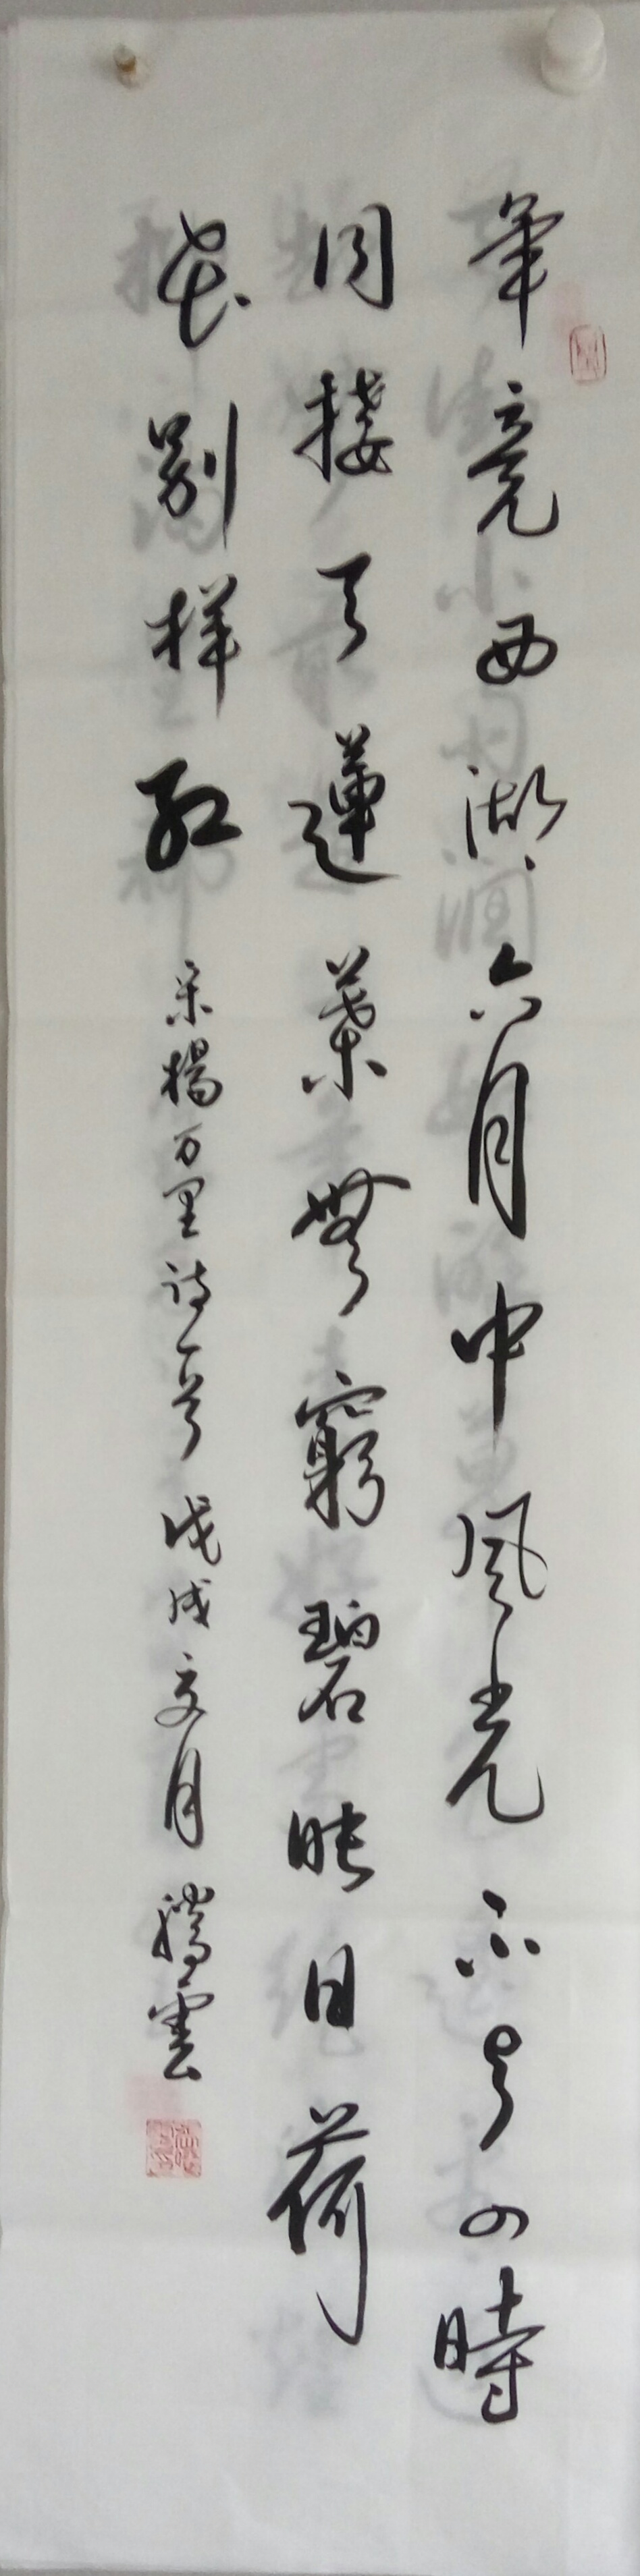 畢竟西湖六月中風光不与四時
同接天蓮葉無窮碧映日荷
花别样红 宋楊万里詩一首 戊戌夏月 騰雲